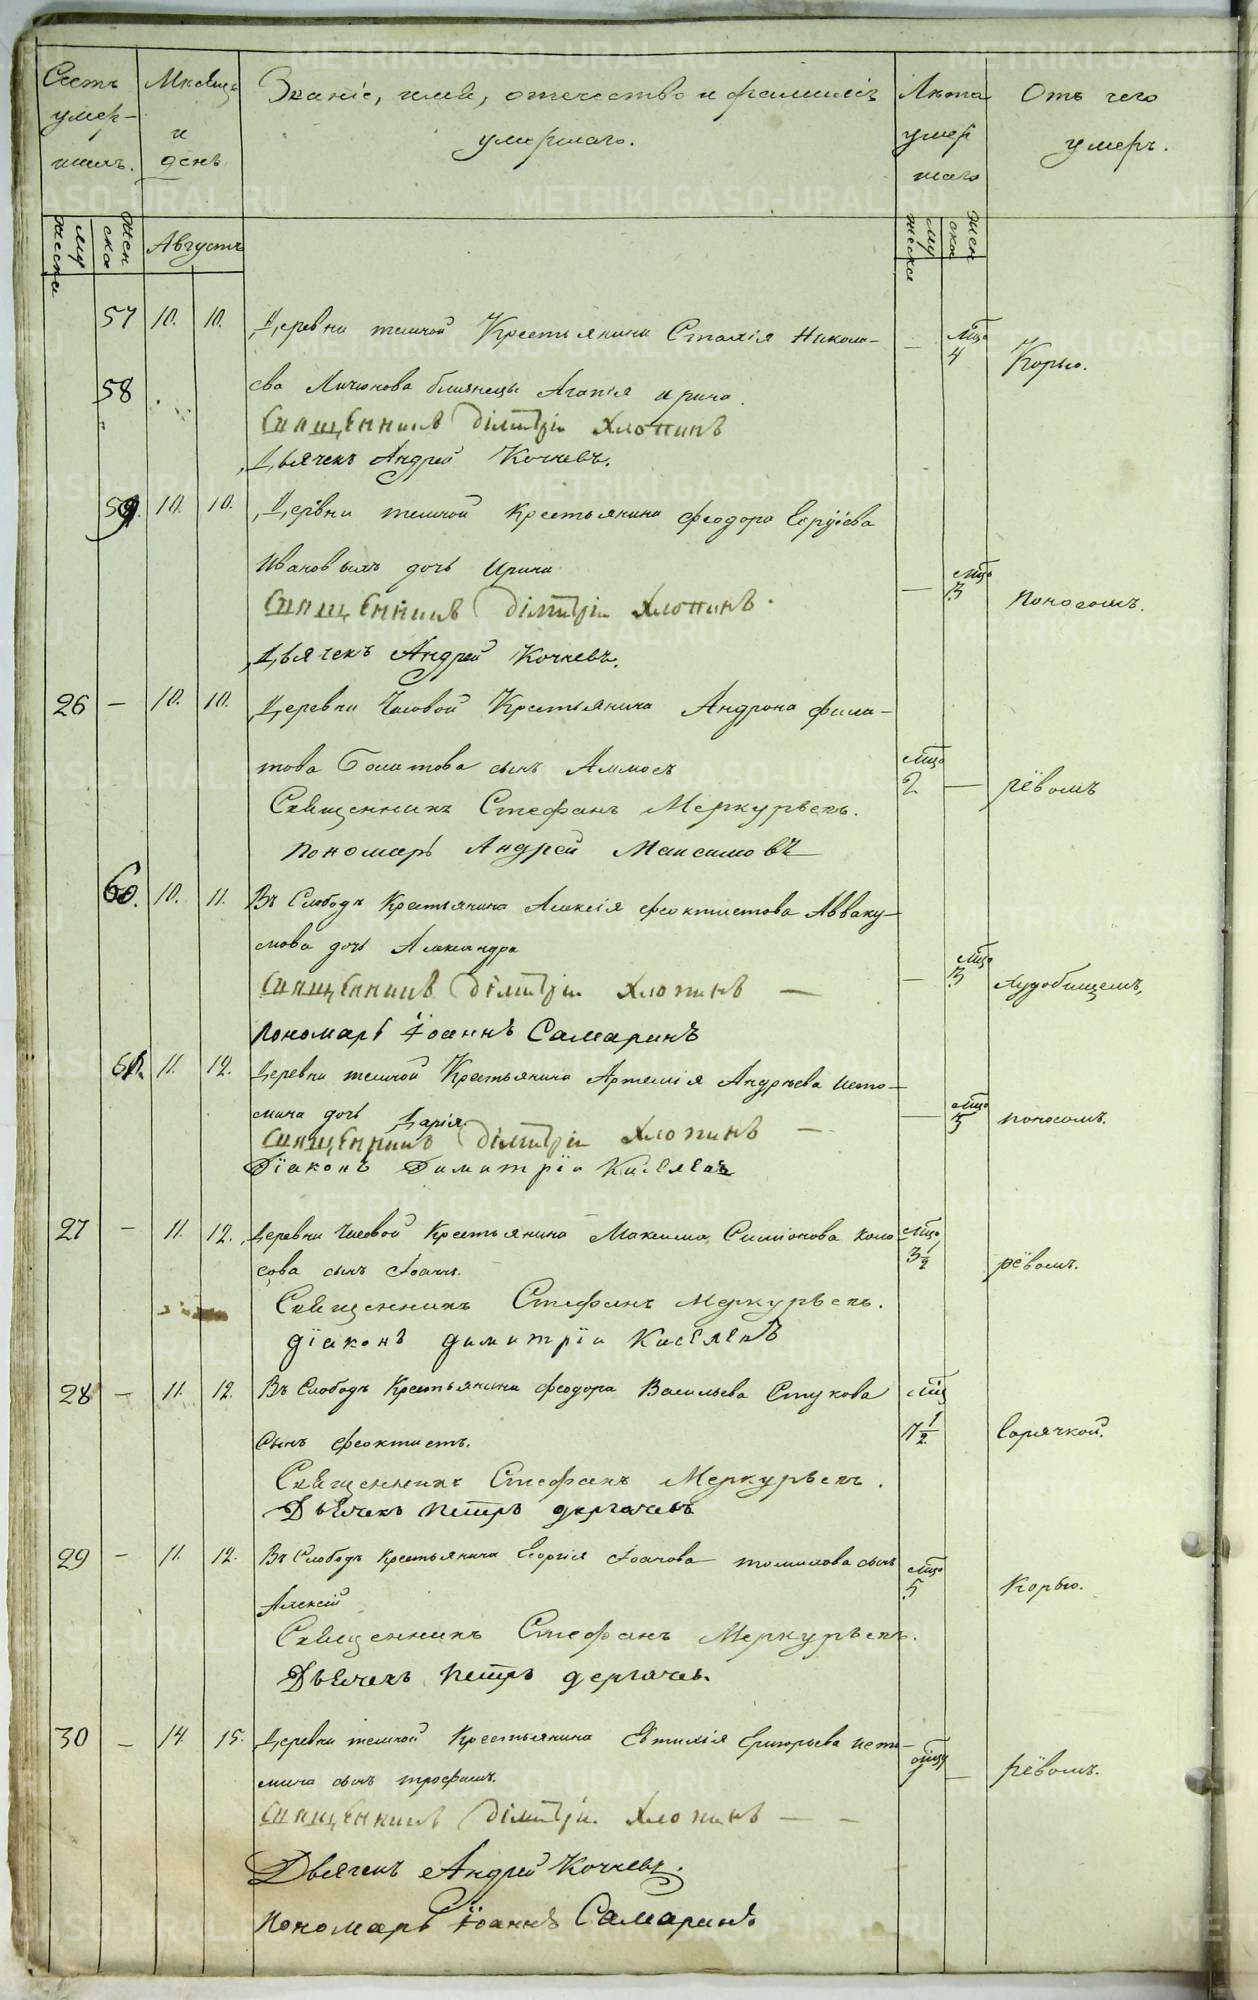 Счетъ умер- шихъ.
Мѣсяцъ и день
Званіе, имя, отечество и фамилія умершаго.
Лѣта умер шаго
Отъ чего умеръ.
му жеска
жен ска
Августъ
му жеска
жен ска
57 10. 10. Деревни темной Крестьянина Никола- — мѣс. 4 Корью.
58 ева близнецы Агапія Ирина.
Священникъ Дімитрій Хлопинъ
Дьячекъ Андрей Кочневъ.
59. 10. 10. Деревни темной Крестьянина Феодора Сергіева
Ивановыхъ дочь Ирина — мѣс. 3 Поносомъ.
Священникъ Дімитрій Хлопинъ.
Дьячекъ Андрей Кочневъ.
26 — 10. 10. Деревни Часовой Крестьянина Андрона Фила-
това сынъ Аммосъ мѣс. 2 — рёвомъ
Священникъ Стефанъ Меркурьевъ.
Пономарь Андрей Максимовъ
60. 10. 11. Въ Слободѣ Крестьянина Алексія Феоктистова Авваку-
мова дочь Александра — мѣс. 3 худобищемъ,
Священникъ Дімитрій Хлопинъ —
Пономарь Іоаннъ Самаринъ
61. 11. 12. Деревни темной Крестьянина Артемія Андреева Исто-
мина дочь Дарія. — мѣс. поносомъ.
Священникъ Дімитрій Хлопинъ —
Діаконъ Димитрій Киселевъ
27 — 11. 12. Деревни Часовой Крестьянина Максима Симіонова коло- мѣс. 3 1/2
сова сынъ Іоаннъ. рёвомъ.
Священникъ Стефанъ Меркурьевъ.
Діаконъ Димитрій Киселевъ
28 — 11. 12. Въ Слободѣ Крестьянина Феодора Васильева Стукова мѣс
сынъ Феоктистъ. 1/2 Горячкой.
Священникъ Стефанъ Меркурьевъ.
Дьячекъ Петръ Дергачевъ
29 — 11. 12. Въ Слободѣ Крестьянина Георгія томилова сынъ мѣс. 5 Корью.
Алексій
Священникъ Стефанъ Меркурьевъ.
Дьячекъ Петръ Дергачевъ.
30 — 14 15. Деревни темной Крестьянина Евтихія Григорьева исто-
мина сынъ трофимъ. — рёвомъ.
Священникъ Дімитрій Хлопинъ — —
Дьячекъ Андрей Кочневъ.
Пономарь Іоаннъ Самаринъ
METRIKI.GASO-URAL.RU